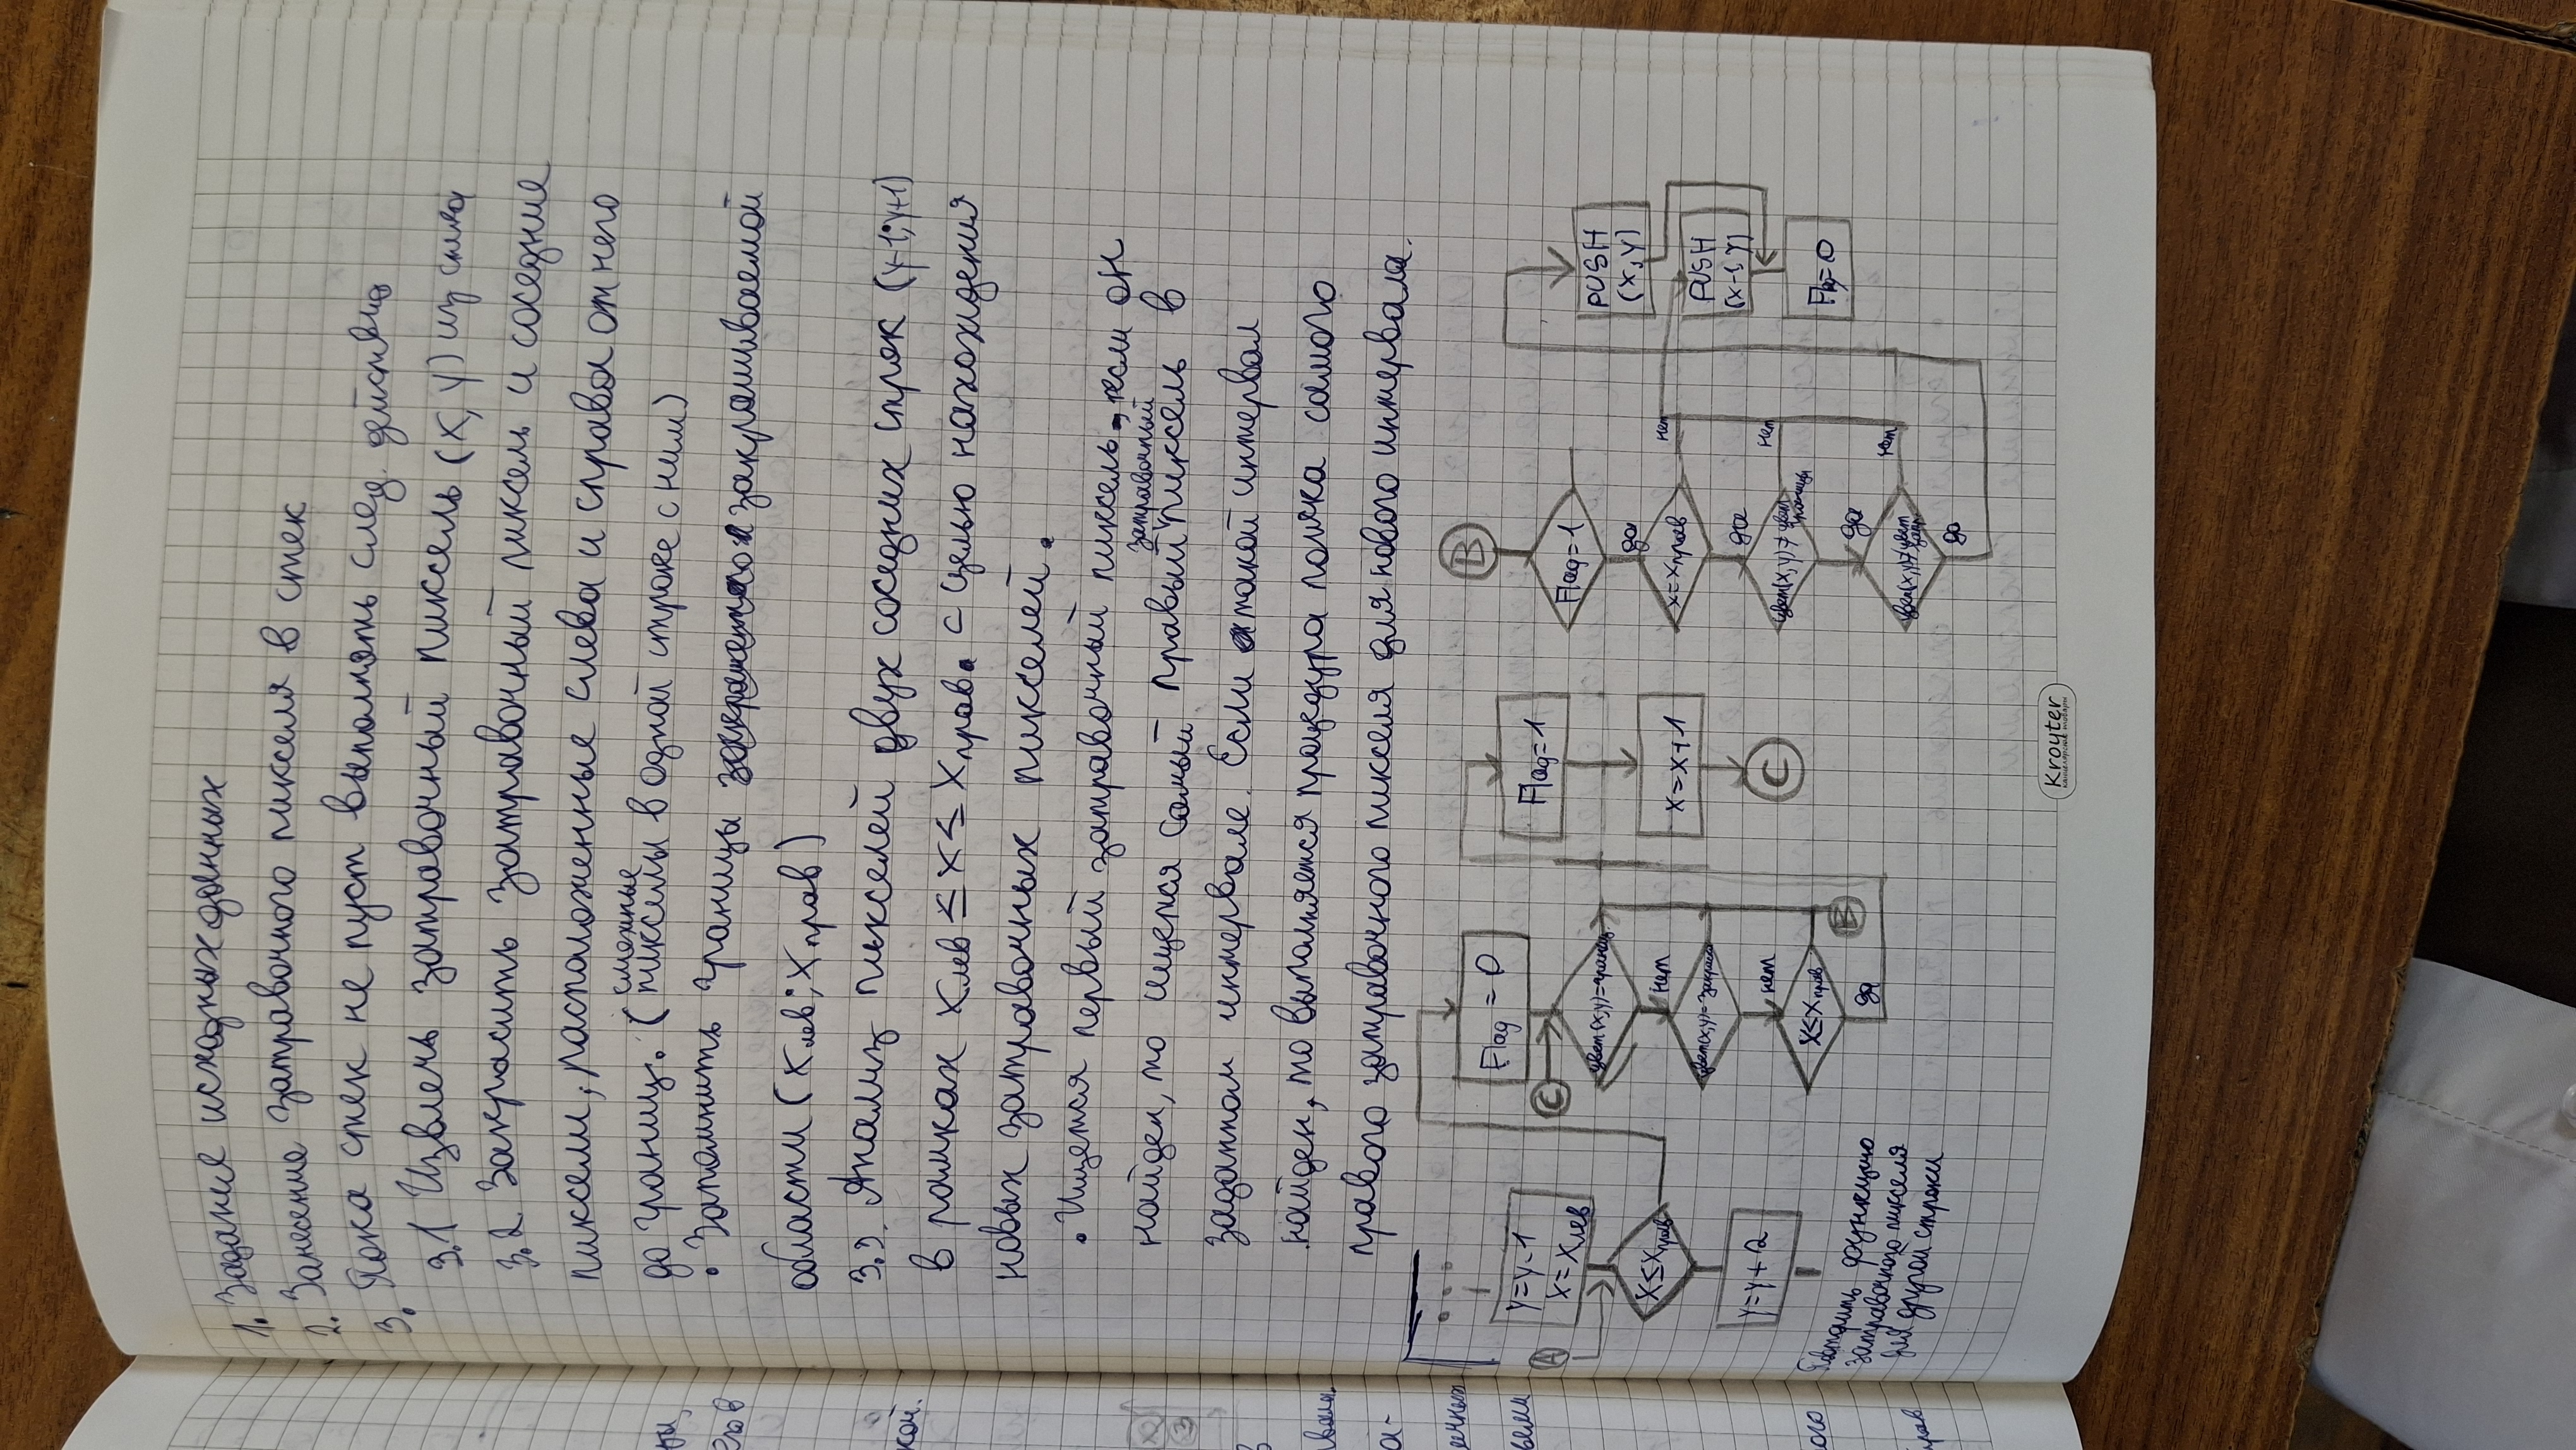 1. Задание исходных данных
2. Занесение затравочного пикселя в стек
3. Пока стек не пуст выполнять след. действия
3.1 Извлечь затравочный пиксель (x, y) из стека
3.2 Закрасить затравочный пиксель и соседние
пиксели, расположенные слева и справа от него
до границ. (смежные пикселы в одной строке с ним)
• Запомнить границы закрашиваемой
области (Xлев; Xправ)
3.3. Анализ пикселей двух соседних строк (y-1; y+1)
в рамках Xлев ≤ x ≤ Xправ. с целью нахождения
новых затравочных пикселей.
• Ищется первый затравочный пиксель, если он
найден, то ищется самый правый затравочный пиксель в
заданном интервале. Если такой интервал
найден, то выполняется процедура поиска самого
правого затравочного пикселя для нового интервала.
y=y-1
x=xлев
A
x≤xправ
y=y+2
Повторить функцию
затравочного пикселя
для другой строки
Flag = 0
C
цвет(x,y)=границ.
нет
цвет(x,y)=закраска
нет
x≤xправ
да
Flag=1
x=x+1
C
B
Flag=1
да
x=xправ
нет
да
цвет(x,y)≠цвет
границы
нет
да
цвет(x,y)≠цвет
нет
да
PUSH
(x,y)
PUSH
(x-1,y)
Flag=0
Kroyter
канцелярские товары